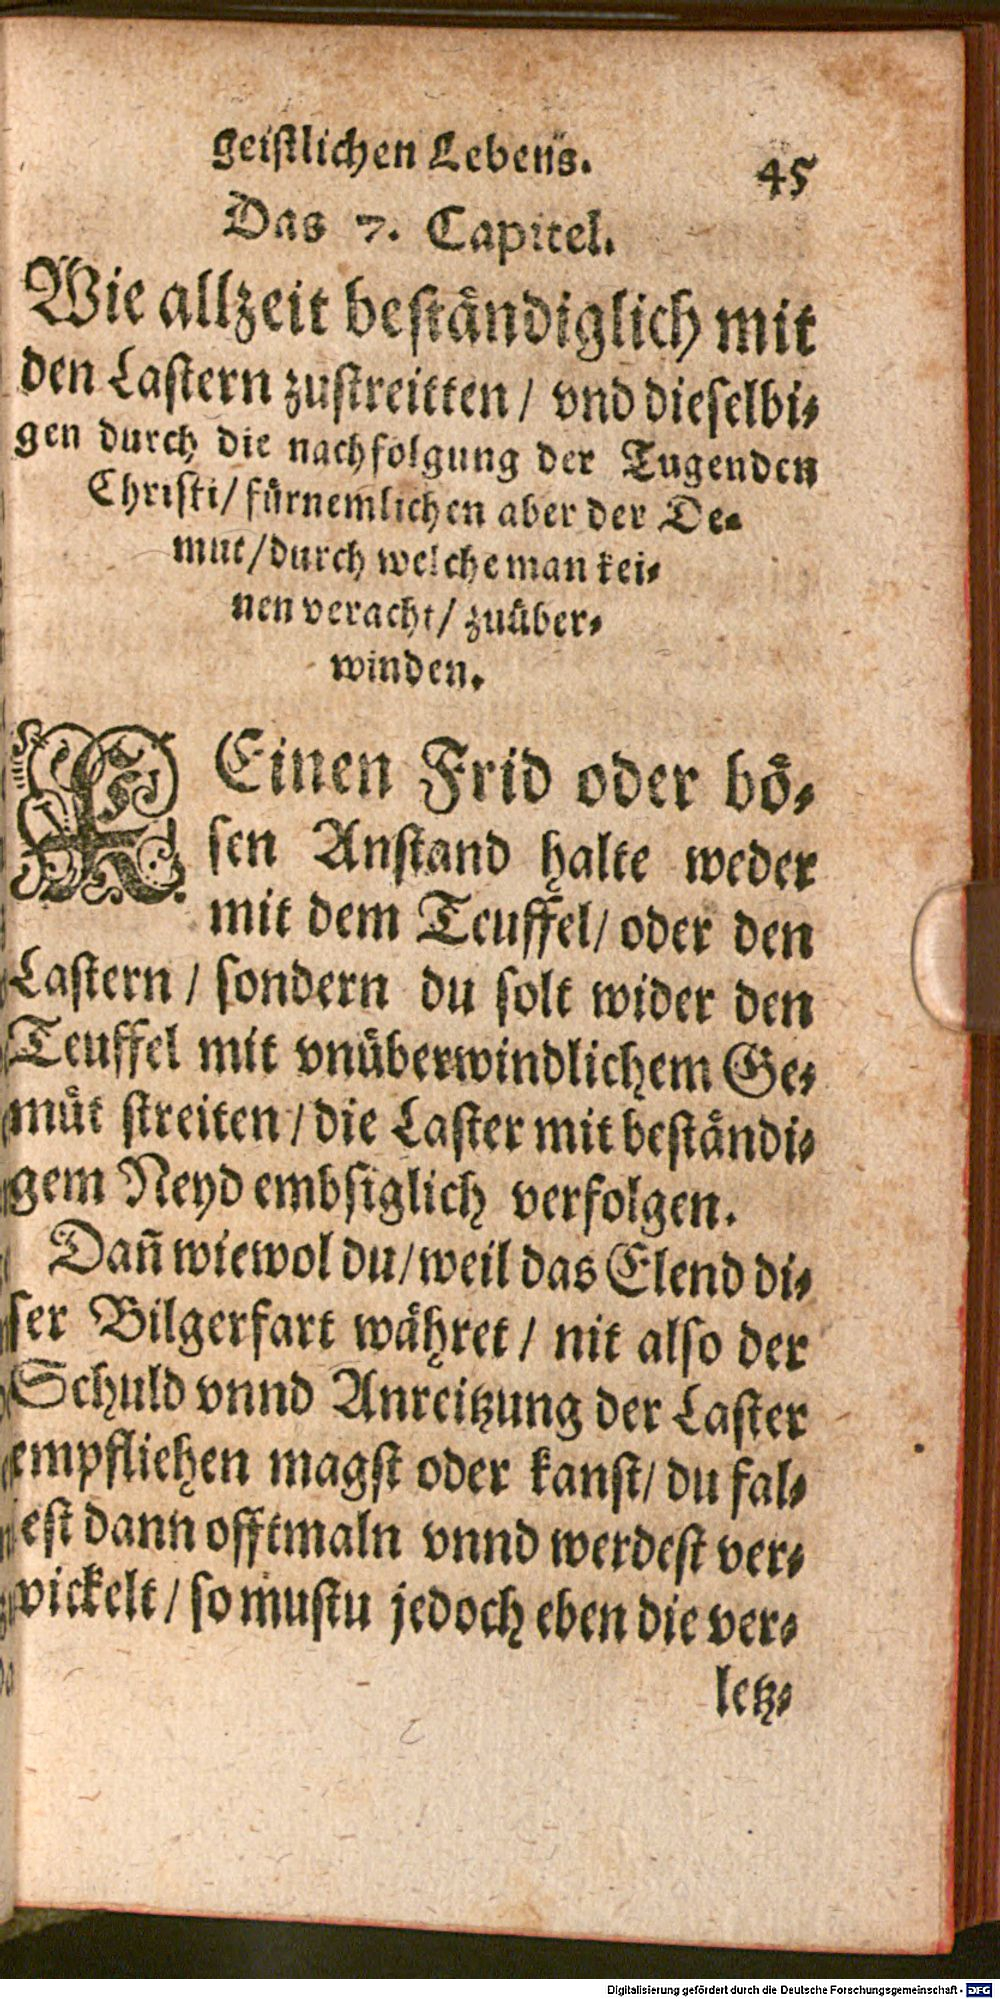 geistlichen Lebens.
45
Das 7. Capitel.
Wie allzeit beståndiglich mit
den Lastern zustreitten / vnd dieselbi-
gen durch die nachfolgung der Tugenden
Christi / fůrnemlichen aber der De-
mut / durch welche man kei-
nen veracht / zuůber-
winden.
KEinen Frid oder bô-
sen Anstand halte weder
mit dem Teuffel / oder den
Lastern / sondern du solt wider den
Teuffel mit vnůberwindlichem Ge-
můt streiten / die Laster mit beståndi-
gem Neyd embsiglich verfolgen.
Dañ wiewol du / weil das Elend di-
ser Bilgerfart wåhret / nit also der
Schuld vnnd Anreitzung der Laster
empfliehen magst oder kanst / du fal-
lest dann offtmaln vnnd werdest ver-
wickelt / so mustu jedoch eben die ver-
letz-
Digitalisierung gefördert durch die Deutsche Forschungsgemeinschaft - DFG